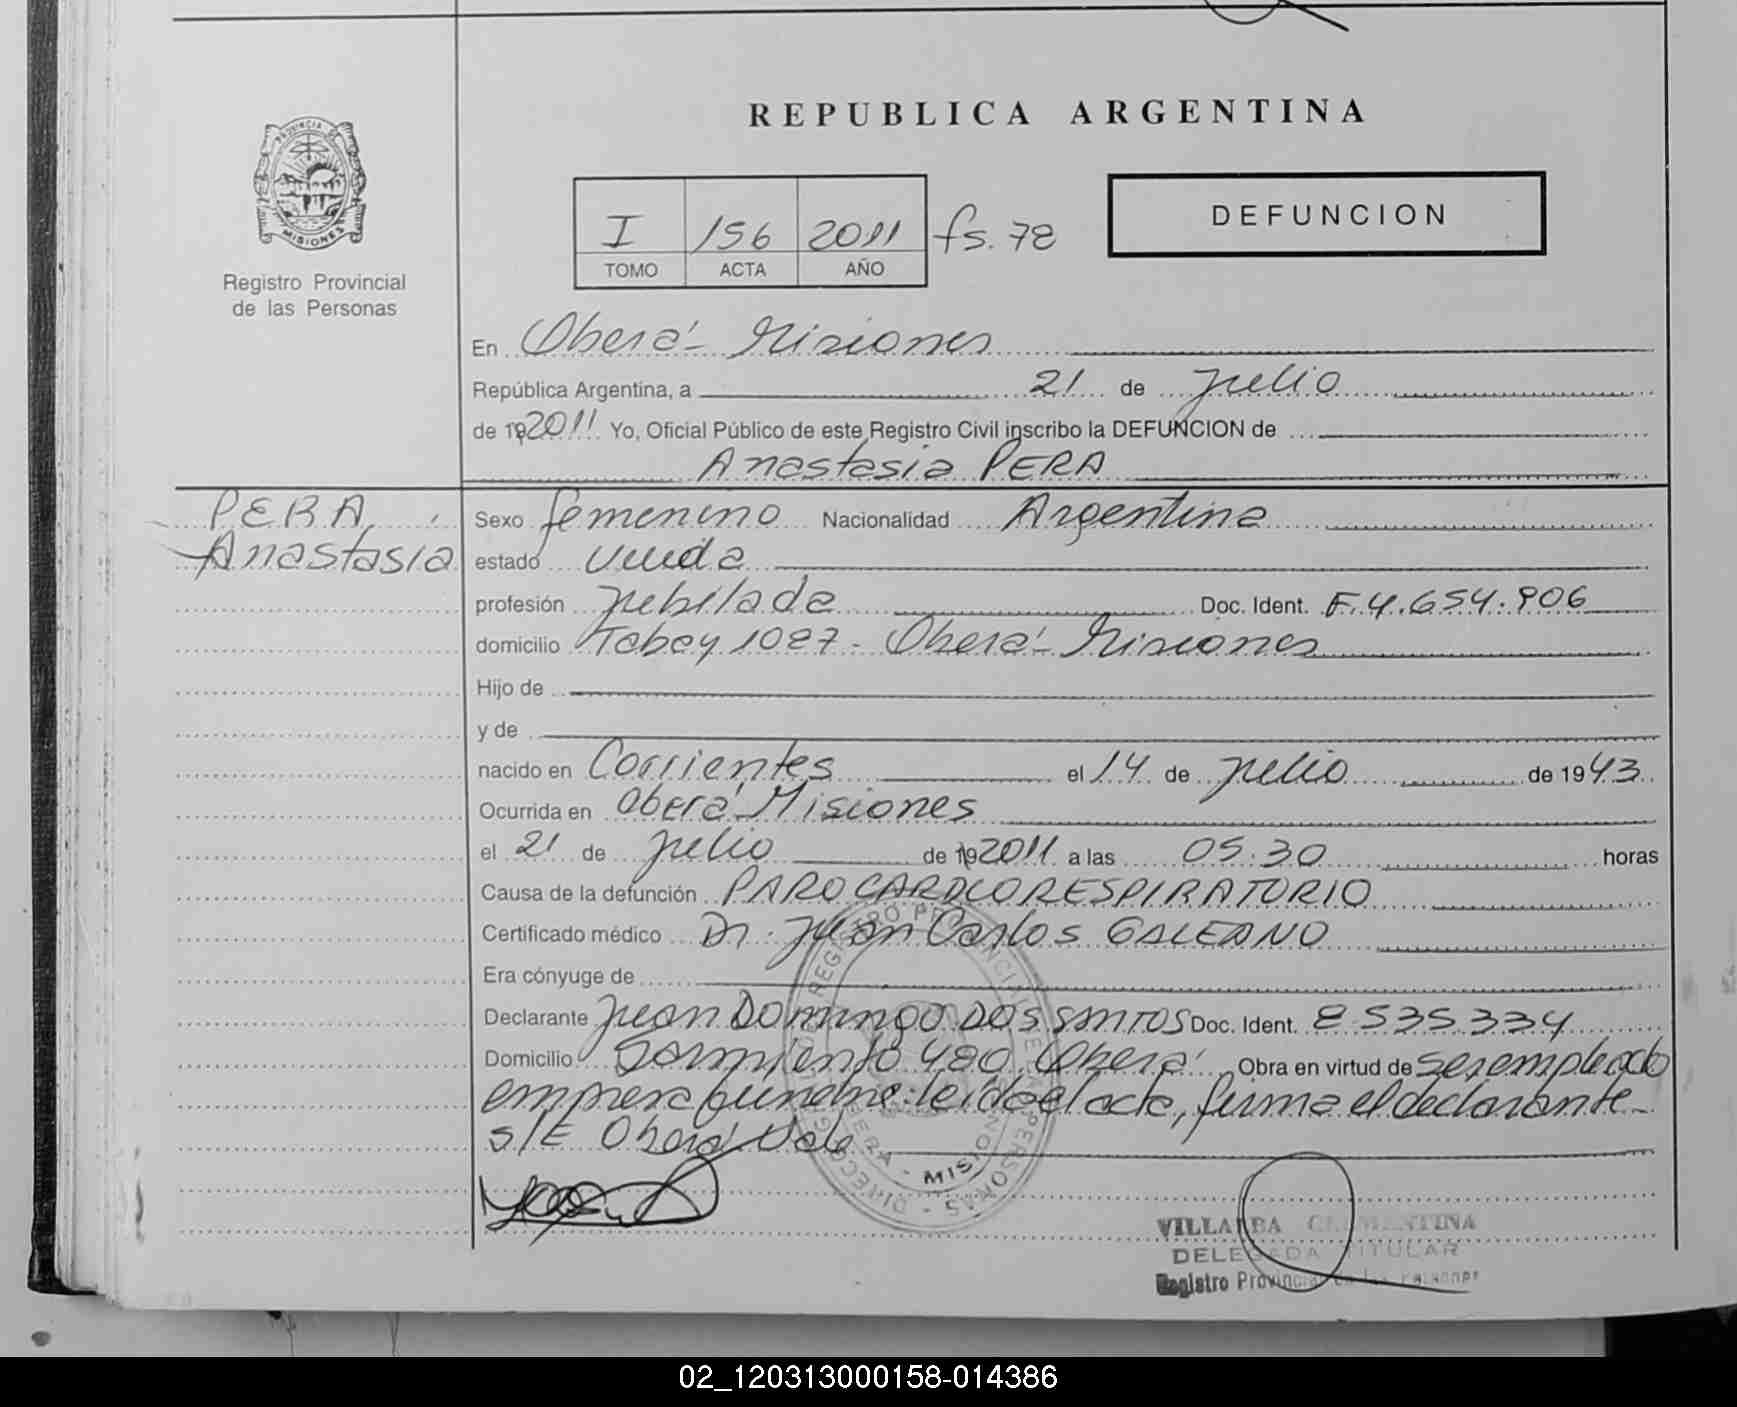 PROVINCIA DE
MISIONES
Registro Provincial
de las Personas
REPUBLICA ARGENTINA
I 156 2011 fs. 78
TOMO ACTA AÑO
DEFUNCION
En Oberá - Misiones
República Argentina, a 21 de julio
de 19 2011 Yo, Oficial Público de este Registro Civil inscribo la DEFUNCION de
Anastasia PERA
PERA
Anastasia
Sexo femenino Nacionalidad Argentina
estado viuda
profesión jubilada Doc. Ident. F.4.654.906
domicilio Tabay 1087 - Oberá - Misiones
Hijo de
y de
nacido en Corrientes el 14 de julio de 1943
Ocurrida en Oberá Misiones
el 21 de julio de 19 2011 a las 05.30 horas
Causa de la defunción PARO CARDIORESPIRATORIO
Certificado médico Dr. Juan Carlos GALEANO
Era cónyuge de
Declarante Juan Domingo DOS SANTOS Doc. Ident. 8535334
Domicilio Sarmiento 480 Oberá Obra en virtud de ser empleado
empresa funebre. leída el acta, firma el declarante
S/E Oberá Vale
MISIONES
VILLALBA CLEMENTINA
DELEGADA TITULAR
Registro Provincial de las Personas
02_120313000158-014386